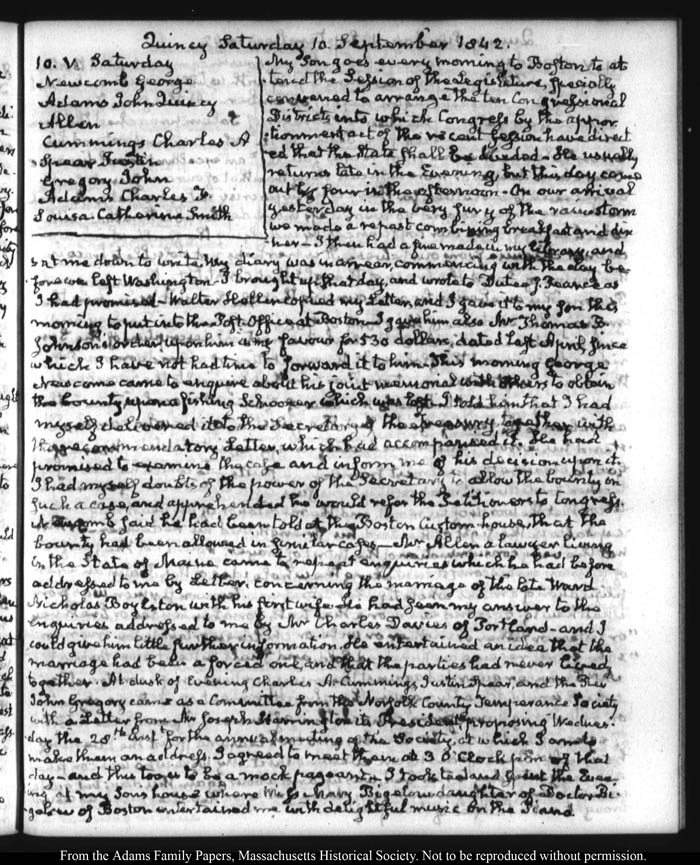 Quincy Saturday 10. September 1842.
10. V. Saturday
Newcomb George
Adams John Quincy
Allen
Cummings Charles A
Spear Justin
Gregory John
Adams Charles F.
Louisa Catherine Smith
My Son goes every morning to Boston to at
tend the Session of the Legislature, specially
convened to arrange the ten Congressional
Districts into which Congress by the appor
tionment act of the recent Session have direct
ed that the State shall be divided – He usually
returns late in the Evening, but this day came
out by four in the afternoon – On our arrival
yesterday in the very fury of the rain storm
we made a repast combining breakfast and din
ner – I then had a fire made in my library, and
sat me down to write. My diary was in arrear, commencing with the day be
fore we left Washington – I brought up that day, and wrote to Dutee J. Pearce as
I had promised – Walter Hellen copied my Letter, and I gave it to my Son this
morning to put into the Post-Office at Boston – I gave him also Mr Thomas B.
Johnson's order upon him in my favour for 530 dollars, dated last April, since
which I have not had time to forward it to him. This morning George
Newcomb came to enquire about his joint memorial with others to obtain
the bounty upon a fishing Schooner which was lost – I told him that I had
myself delivered it to the Secretary of the Treasury, together with
the recommendatory Letter, which had accompanied it. He had
promised to examine the case and inform me of his decision upon it.
I had myself doubts of the power of the Secretary to allow the bounty in
such a case, and apprehended he would refer the Petitioners to Congress.
Newcomb said he had been told at the Boston Custom-house, that the
bounty had been allowed in similar cases – Mr Allen a lawyer living
in the State of Maine came to repeat enquiries which he had before
addressed to me by Letter, concerning the marriage of the late Ward
Nicholas Boylston with his first wife – he had seen my answer to the
enquiries addressed to me by Mr Charles Davies of Portland – and I
could give him little further information. He entertained an idea that the
marriage had been a forced one, and that the parties had never lived
together. At dusk of evening Charles A. Cummings, Justin Spear, and the Revd
John Gregory came as a Committee from the Norfolk County Temperance Society
with a Letter from Mr Joseph Harrington its President proposing Wednes-
day the 28th inst for the annual meeting of the Society, at which I am to
make them an address. I agreed to meet them at 3 O'Clock P.M. of that
day – and this too is to be a mock pageant – I took tea and spent the Even
ing at my Sons house where Miss Mary Bigelow daughter of Doctor Bi-
gelow of Boston entertained me with delightful music on the Piano.
From the Adams Family Papers, Massachusetts Historical Society. Not to be reproduced without permission.